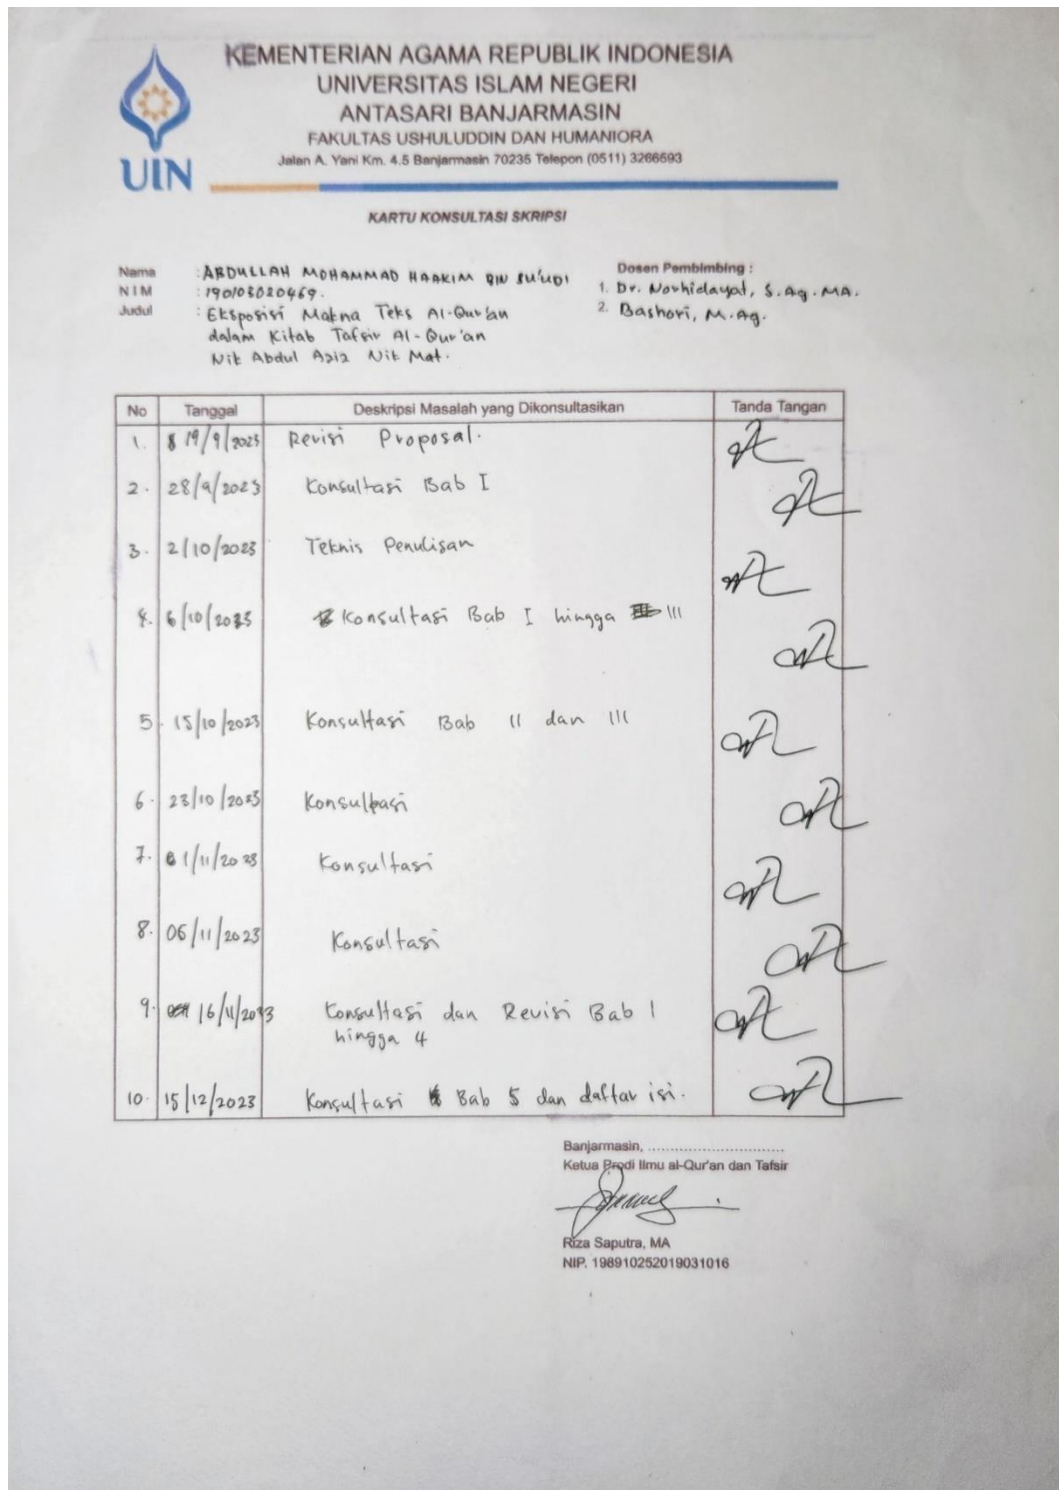 KEMENTERIAN AGAMA REPUBLIK INDONESIA
UNIVERSITAS ISLAM NEGERI
ANTASARI BANJARMASIN
FAKULTAS USHULUDDIN DAN HUMANIORA
Jalan A. Yani Km. 4.5 Banjarmasin 70235 Telepon (0511) 3266593
UIN
KARTU KONSULTASI SKRIPSI
Nama : ABDULLAH MOHAMMAD HAAKIM BIN SU'UDI
NIM : 190103020469.
Judul : Eksposisi Makna Teks Al-Qur'an
dalam Kitab Tafsir Al-Qur'an
Nik Abdul Aziz Nik Mat.
Dosen Pembimbing :
1. Dr. Norhidayat, S.Ag.MA.
2. Bashori, M.Ag.
No Tanggal Deskripsi Masalah yang Dikonsultasikan Tanda Tangan
1. 19/9/2023 Revisi Proposal.
2. 28/9/2023 Konsultasi Bab I
3. 2/10/2023 Teknis Penulisan
4. 6/10/2023 Konsultasi Bab I hingga III
5. 15/10/2023 Konsultasi Bab II dan III
6. 23/10/2023 Konsultasi
7. 1/11/2023 Konsultasi
8. 06/11/2023 Konsultasi
9. 16/11/2023 Konsultasi dan Revisi Bab 1
hingga 4
10. 15/12/2023 Konsultasi Bab 5 dan daftar isi.
Banjarmasin, ..............................
Ketua Prodi Ilmu al-Qur'an dan Tafsir
Riza Saputra, MA
NIP. 198910252019031016